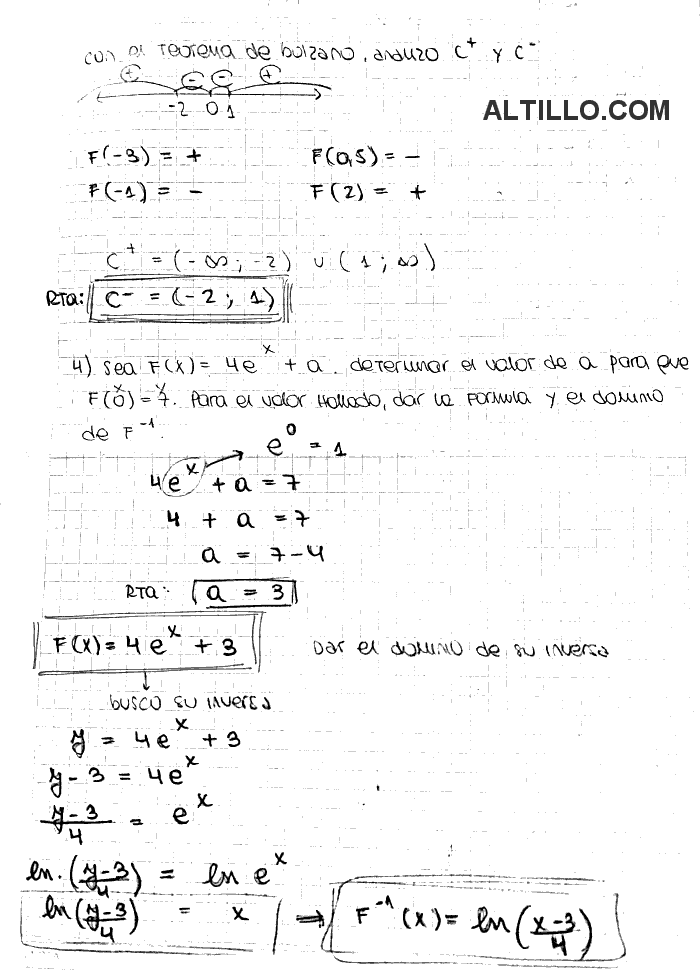 con el Teorema de bolzano, analizo C⁺ y C⁻
+ - - +
-2 0 1
ALTILLO.COM
F(-3) = + F(0,5) = -
F(-1) = - F(2) = +
C⁺ = (-∞; -2) ∪ (1; ∞)
RTA: C⁻ = (-2; 1)
4) sea F(x) = 4e^x + a. determinar el valor de a para que
x y
F(0) = 7. Para el valor Hallado, dar la Formula y el dominio
de F⁻¹.
e⁰ = 1
4e^x + a = 7
4 + a = 7
a = 7-4
RTA: a = 3
F(x) = 4e^x + 3 Dar el dominio de su inversa
busco su inversa
y = 4e^x + 3
y - 3 = 4e^x
(y-3)/4 = e^x
ln.((y-3)/4) = ln e^x
ln((y-3)/4) = x ⇒ F⁻¹(x) = ln((x-3)/4)